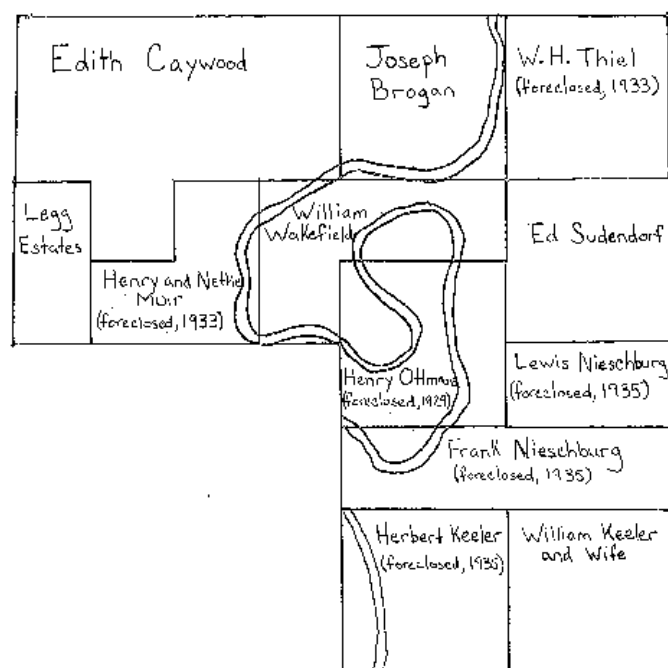 Edith Caywood
Joseph
Brogan
W.H. Thiel
(foreclosed, 1933)
Legg
Estates
William
Wakefield
Ed Sudendorf
Henry and Nettie
Muir
(foreclosed, 1933)
Henry
(foreclosed, 1929)
Lewis Nieschburg
(foreclosed, 1935)
Frank Nieschburg
(foreclosed, 1935)
Herbert Keeler
(foreclosed, 1935)
William Keeler
and Wife